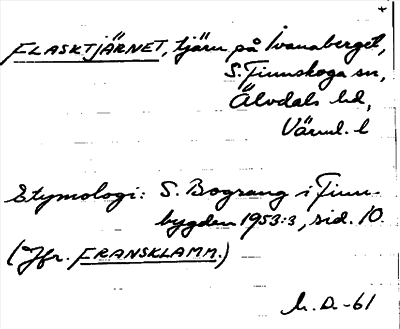 +
FLASKTJÄRNET, tjärn på Ivanaberget,
S. Finnskoga sn,
Älvdals hd,
Värml. l
Etymologi: S. Bograng i Finn-
bygden 1953:3, sid. 10.
(Jfr. FRANSKLAMM.)
M.D.-61